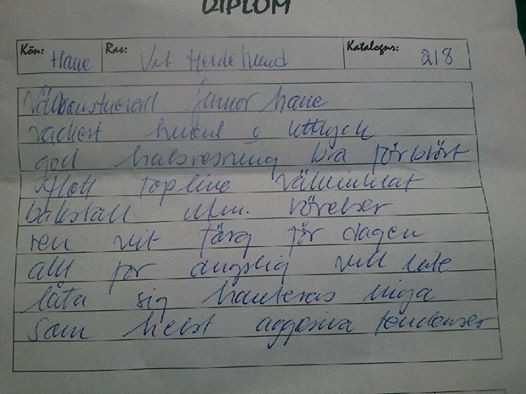 DIPLOM
Kön: Hane Ras: Vit Herdehund Katalognr: 218
Välkonstruerad junior hane
vackert huvud o uttryck
god halsresning bra förbröst
flott topline välvinklat
bakställ rörelser
ren vit färg för dagen
allt för ängslig vill
låta sig hanteras inga
som helst aggresiva tendenser